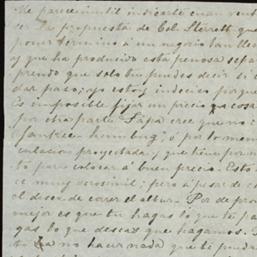 Me parece inutil indicarte cuan vent
ser la propuesta de Col. Sterrett que
poner termino a un negocio tan llen
y que ha producido esta penosa sepa
prendo que solo tu puedes decir si c
dar paso; yo estoy indeciso porque
Es imposible fijar un precio a cosa
por otra parte Papá cree que no e
Yankee humbug, ó por lo menos
culacion proyectada, y que tiene por m
to para colocar á buen precio. Esto
ce muy verosimil; pero á pesar de
el deseo de correr el albur. Por de pro
mejor es que tu hagas lo que te pa
gas lo que deseas que hagamos.
no hacer nada que te pueda